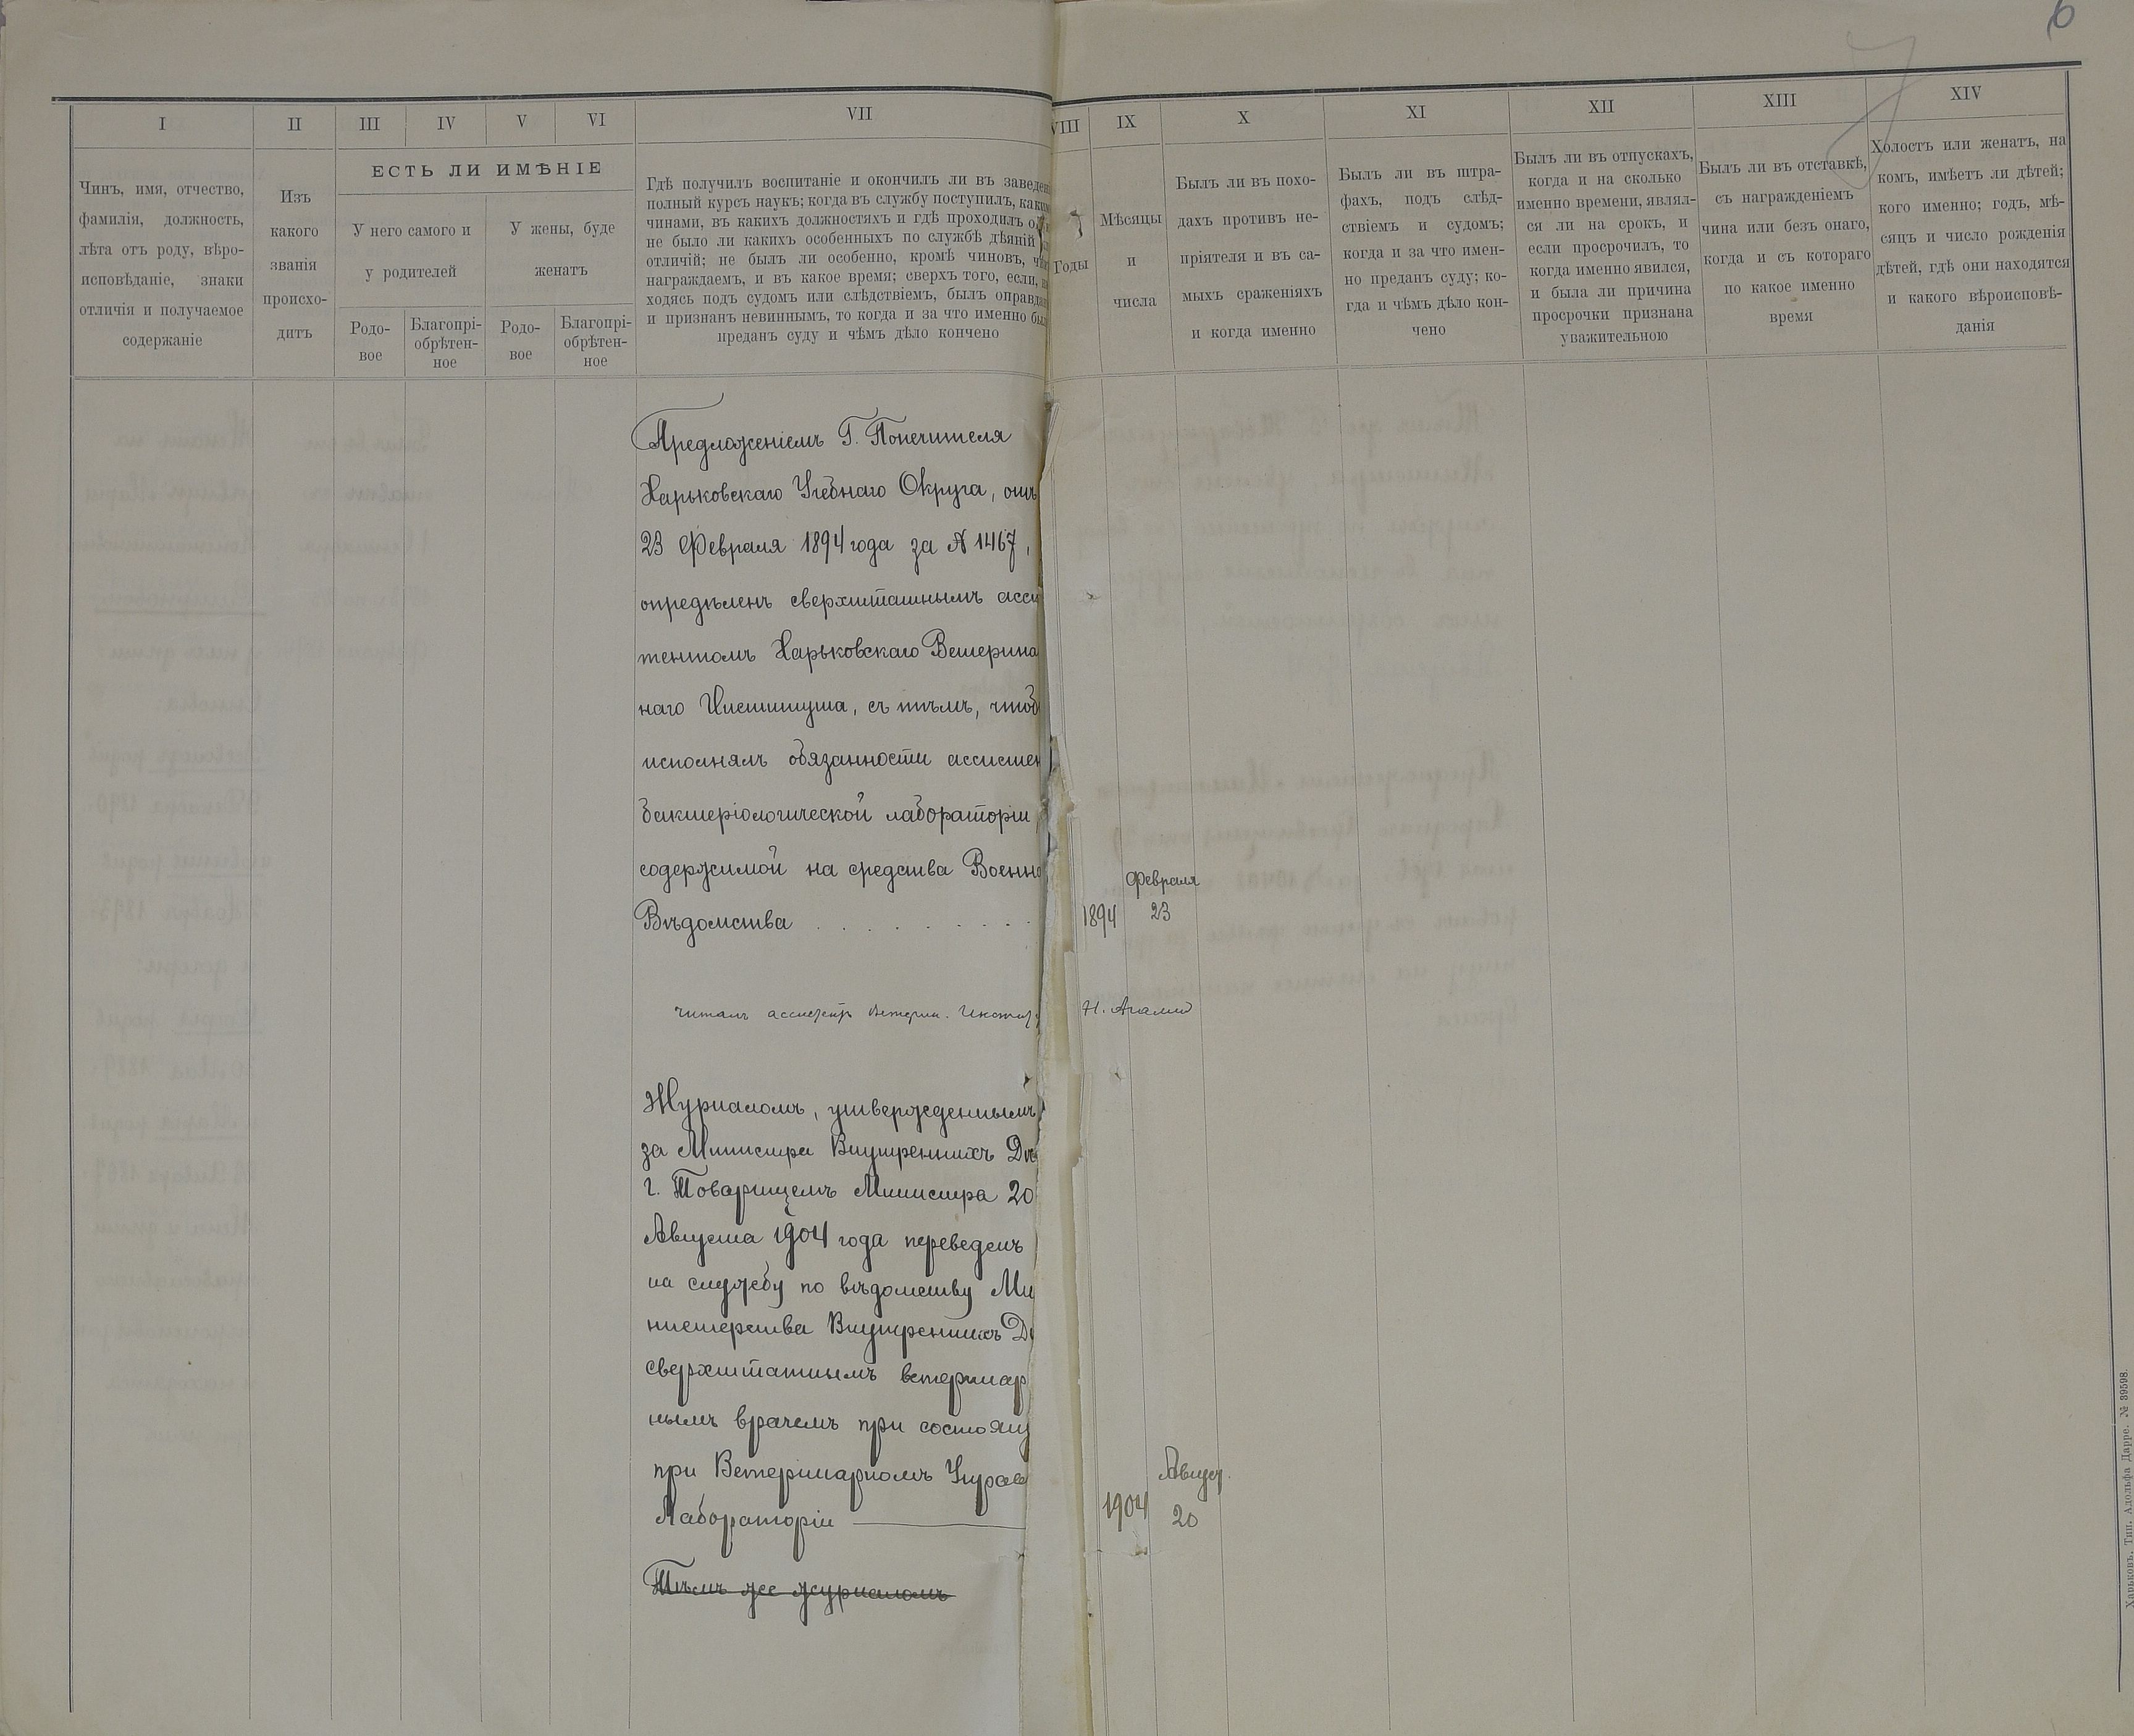 6
7
I II III IV V VI VII VIII IX X XI XII XIII XIV
Чинъ, имя, отчество,
фамилія, должность,
лѣта отъ роду, вѣро-
исповѣданіе, знаки
отличія и получаемое
содержаніе
Изъ
какого
званія
происхо-
дитъ
ЕСТЬ ЛИ ИМѢНІЕ
У него самого и
у родителей
У жены, буде
женатъ
Родо-
вое
Благопрі-
обрѣтен-
ное
Родо-
вое
Благопрі-
обрѣтен-
ное
Гдѣ получилъ воспитаніе и окончилъ ли въ заведен
полный курсъ наукъ; когда въ службу поступилъ, каки
чинами, въ какихъ должностяхъ и гдѣ проходилъ о
не было ли какихъ особенныхъ по службѣ дѣяній
отличій; не былъ ли особенно, кромѣ чиновъ, чѣм
награждаемъ, и въ какое время; сверхъ того, если,
ходясь подъ судомъ или слѣдствіемъ, былъ оправда
и признанъ невиннымъ, то когда и за что именно бы
преданъ суду и чѣмъ дѣло кончено
Годы
Мѣсяцы
и
числа
Былъ ли въ похо-
дахъ противъ не-
пріятеля и въ са-
мыхъ сраженіяхъ
и когда именно
Былъ ли въ штра-
фахъ, подъ слѣд-
ствіемъ и судомъ;
когда и за что имен-
но преданъ суду; ко-
гда и чѣмъ дѣло кон-
чено
Былъ ли въ отпускахъ,
когда и на сколько
именно времени, являл-
ся ли на срокъ, и
если просрочилъ, то
когда именно явился,
и была ли причина
просрочки признана
уважительною
Былъ ли въ отставкѣ,
съ награжденіемъ
чина или безъ онаго,
когда и съ котораго
по какое именно
время
Холостъ или женатъ, на
комъ, имѣетъ ли дѣтей;
кого именно; годъ, мѣ-
сяцъ и число рожденія
дѣтей, гдѣ они находятся
и какого вѣроисповѣ-
данія
Предложеніемъ Г. Попечителя
Харьковскаго Учебнаго Округа, отъ
23 Февраля 1894 года за № 1467,
опредѣленъ сверхштатнымъ асси
тентомъ Харьковскаго Ветерина
наго Института, съ тѣмъ, чтоб
исполнялъ обязанности ассистен
бактеріологической лабораторіи
содержимой на средства Военно
Вѣдомства . . . . . . . 1894 Февраля 23
Читалъ ассистентъ Ветерин. Инстит Н. Агали
Журналомъ, утвержденнымъ
за Министра Внутреннихъ Дѣ
г. Товарищемъ Министра 20
Августа 1904 года переведенъ
на службу по вѣдомству Ми
нистерства Внутреннихъ Д
сверхштатнымъ ветеринар
нымъ врачемъ при состоящ
при Ветеринарномъ Управ
Лабораторіи 1904 Август. 20
Тѣмъ же журналомъ
Харьковъ. Тип. Адольфа Дарре. № 39598.